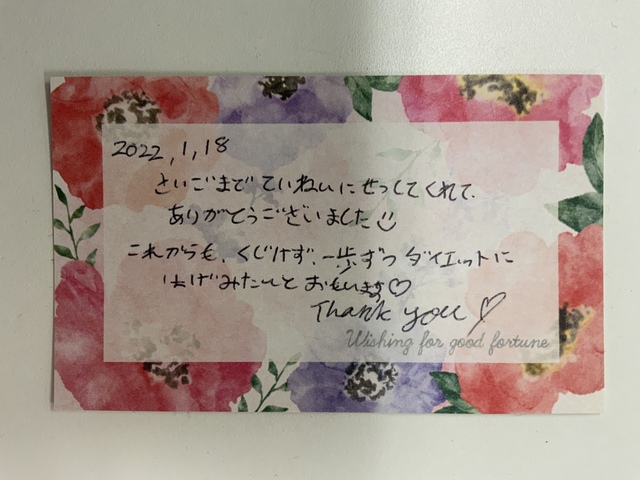 2022,1,18
さいごまで ていねいに せっしてくれて
ありがとうございました
これからも、くじけず、一歩ずつ ダイエットに
はげみたいと おもいます♡
Thank you ♡
Wishing for good fortune